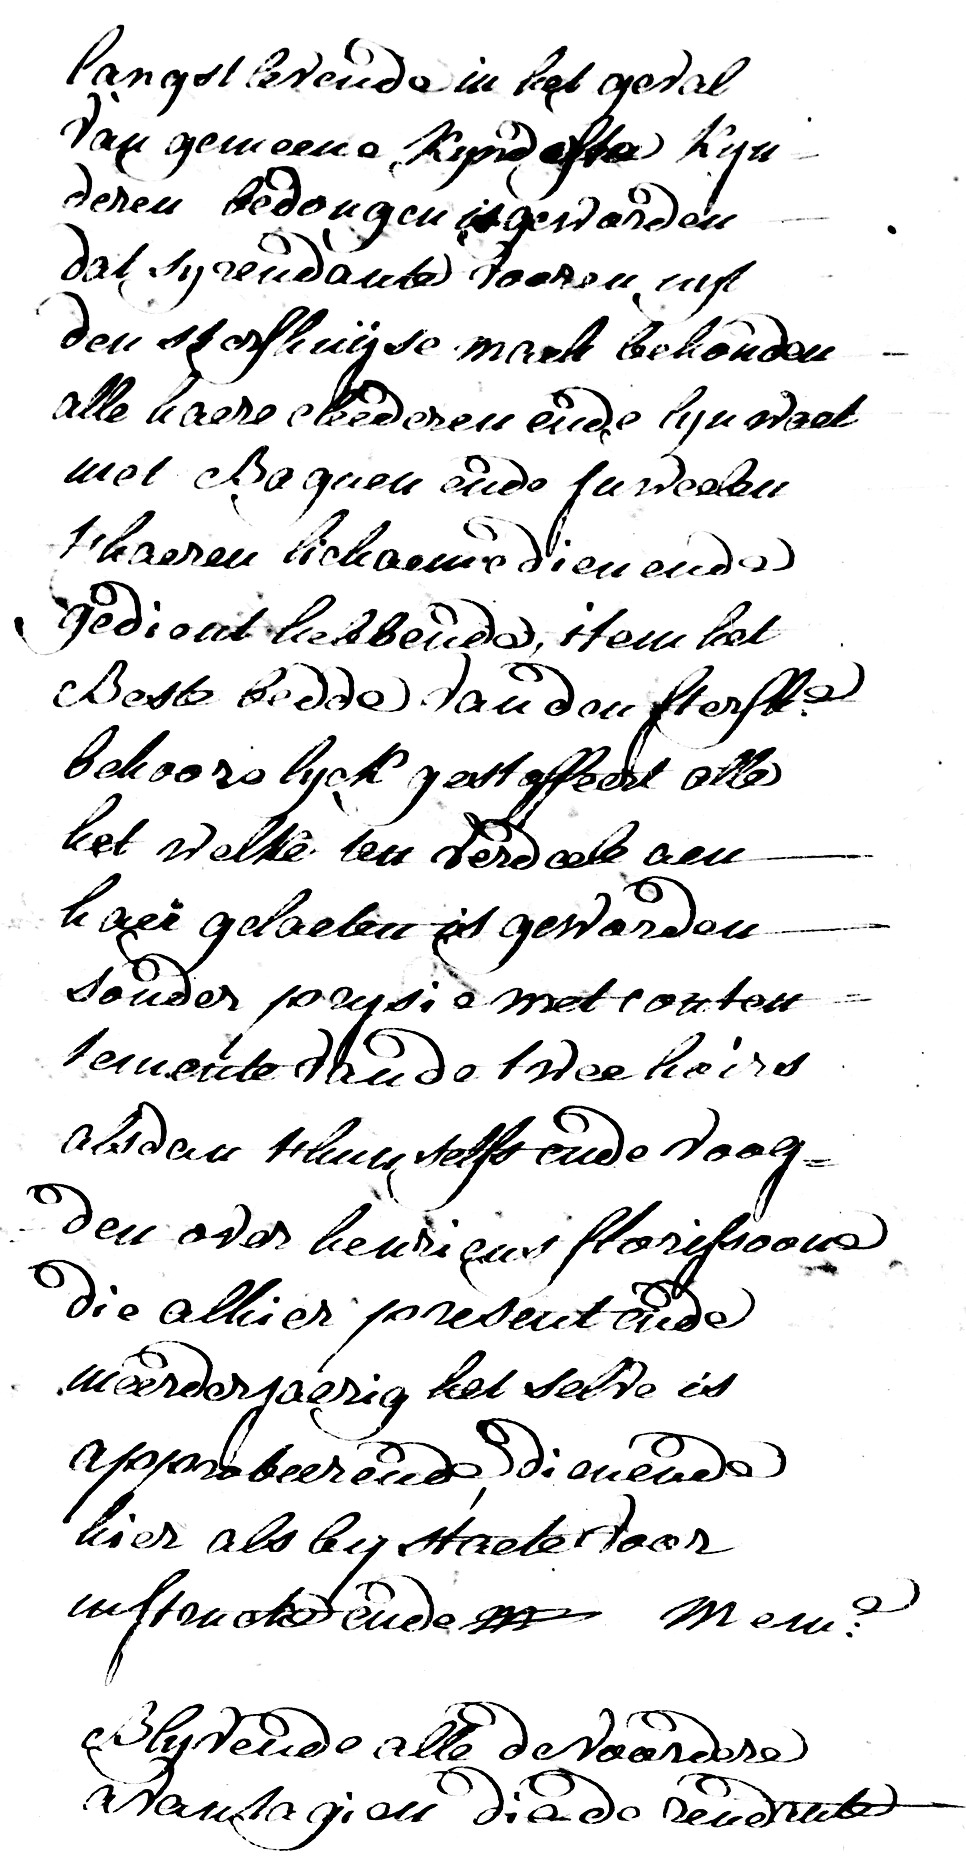 langst levende in het geval
van gemeene kyn-
deren bedongen is geworden
dat sy rendante vooren uyt
den sterfhuijse mach behouden
alle haere cleederen ende lynwaet
met Baguen ende Juweelen
t'haeren lichaeme dienende
gedient hebbende, item het
Beste bedde van den sterfh:e
behoorelyck gestoffeert alle
het welke ten verdeele aen
haer gelaeten is geworden
sonder prysie met conten=
temente van de twee hoirs
alsdan t'hunselfs ende voog=
den over henricus florissoone
die alhier present ende
meerderjaerig het selve is
approbeerende, dienende
hier als by staete voor
instructie ende Mem:e
Blyvende alle de voordere
avantagien die de rendante